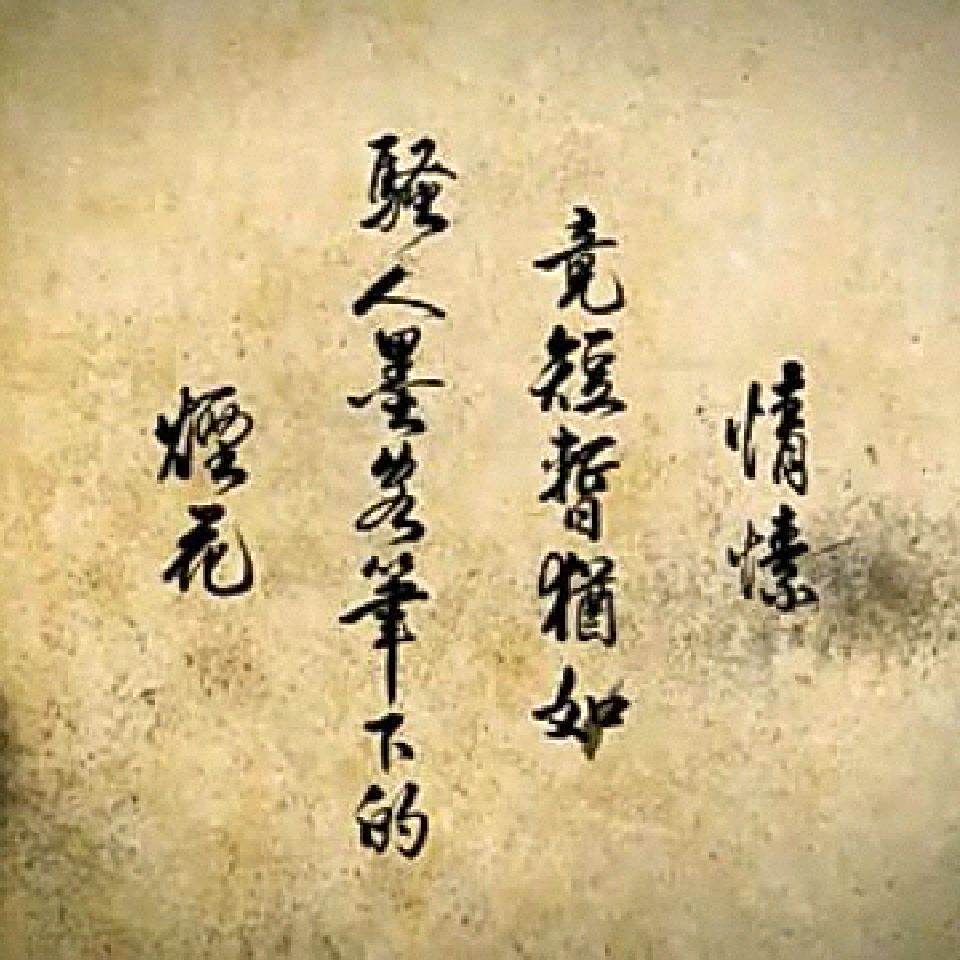 情愫
竟短暫猶如
騷人墨客筆下的
煙花